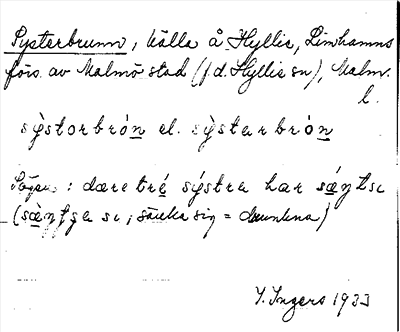 Systerbrunn, källa å Hyllie, Limhamns
förs. av Malmö stad (f.d. Hyllie sn), Malm.
l.
sy̾storbrón el. sy̾starbrón
Sägen: dære tré sýstra har sǽŋtsc
(sæ̀ŋtga sc, sänka sig = drunkna)
I. Ingers 1933